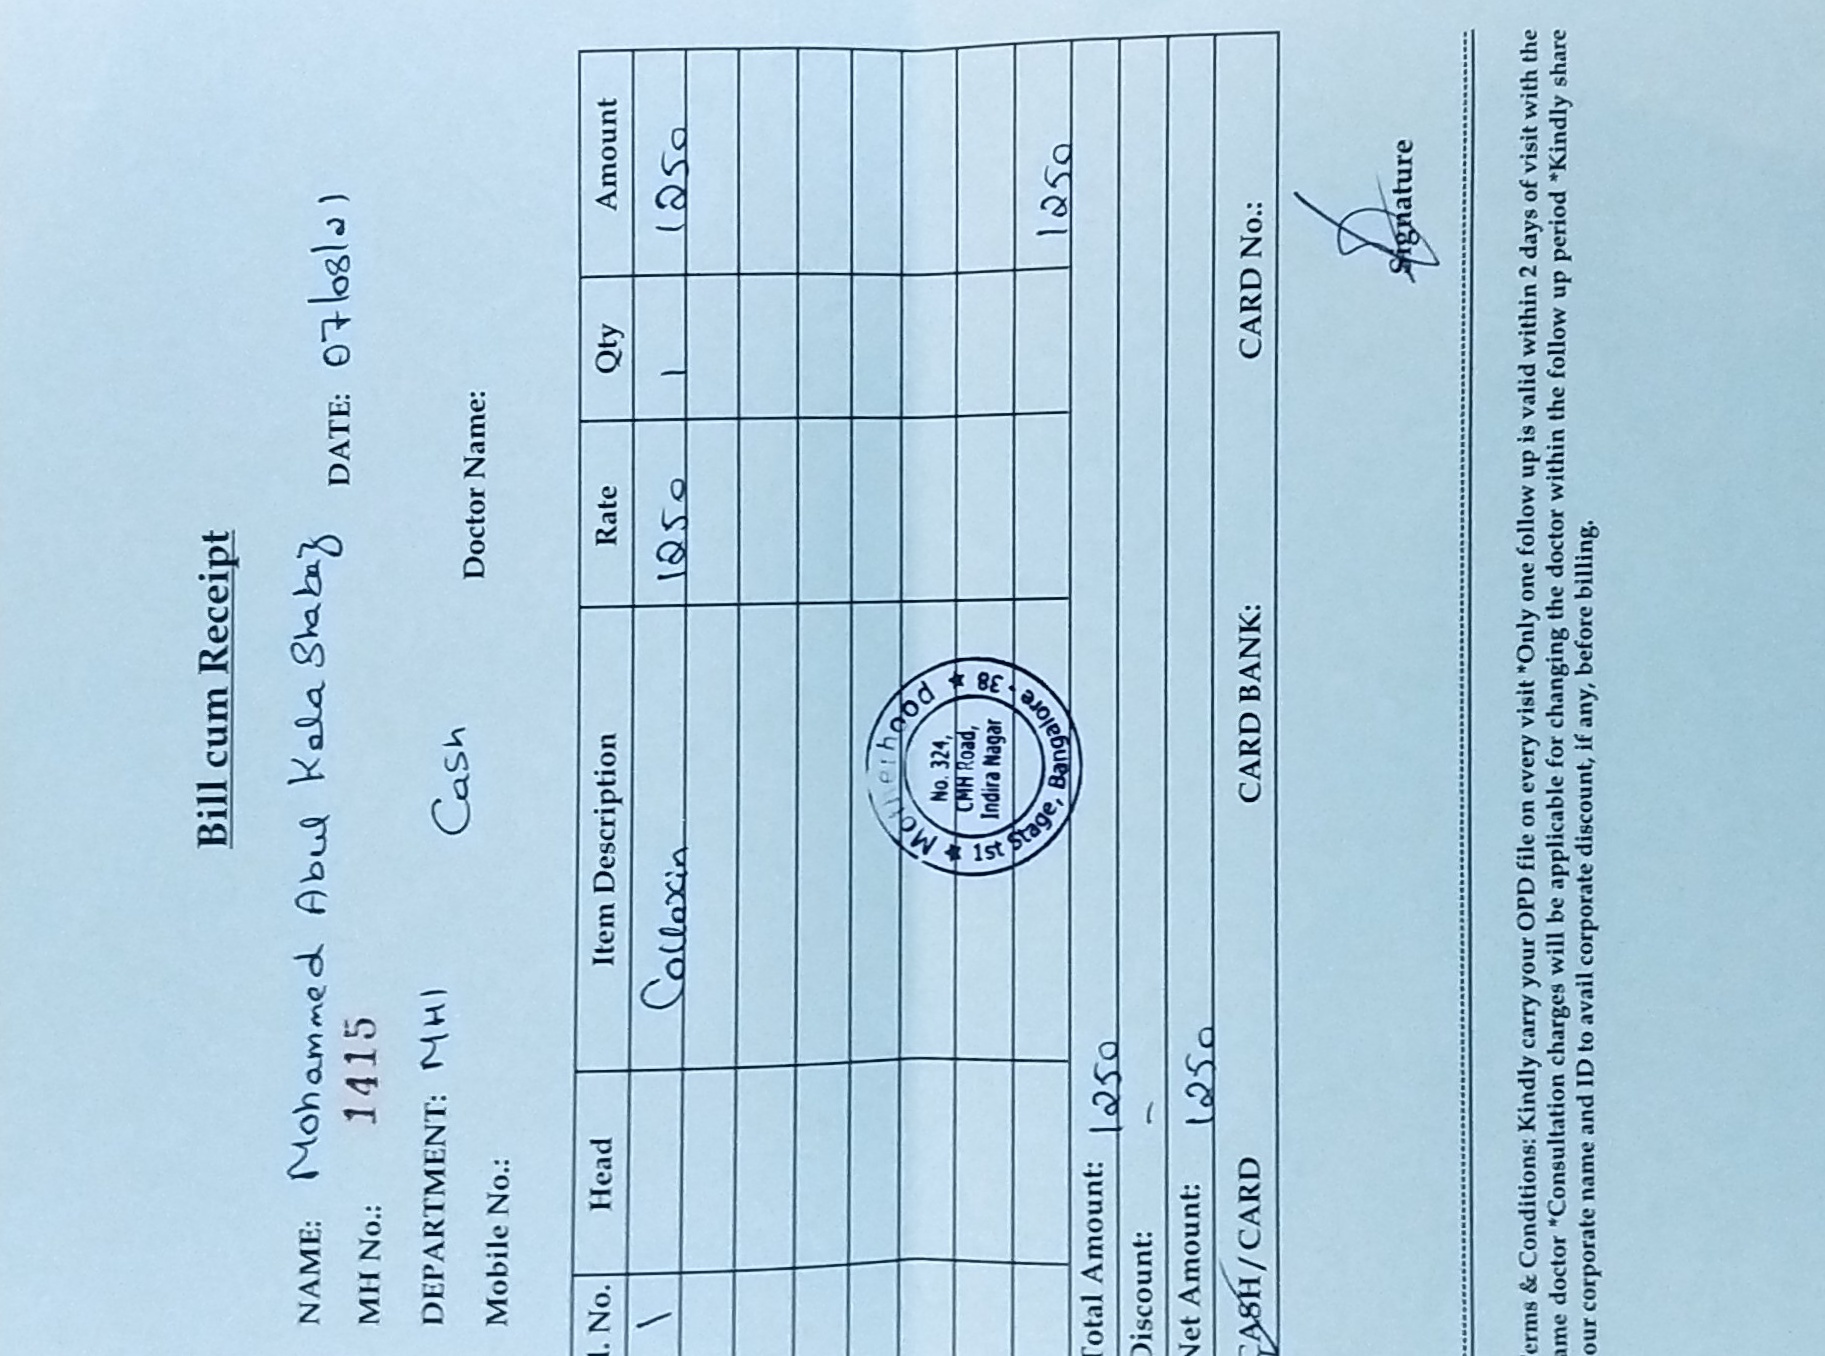 Bill cum Receipt
NAME: Mohammed Abul Kala Shabaz DATE: 07/08/21
MH No.: 1415
DEPARTMENT: MHI Cash
Doctor Name:
Mobile No.:
l. No. Head Item Description Rate Qty Amount
1 Collaxin 1250 1 1250
Motherhood
No. 324,
CMH Road,
Indira Nagar
1st Stage, Bangalore - 38
1250
Total Amount: 1250
Discount: -
Net Amount: 1250
CASH / CARD CARD BANK: CARD No.:
Signature
erms & Conditions: Kindly carry your OPD file on every visit *Only one follow up is valid within 2 days of visit with the
ame doctor *Consultation charges will be applicable for changing the doctor within the follow up period *Kindly share
our corporate name and ID to avail corporate discount, if any, before billing.